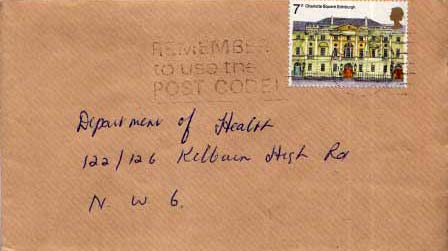 7P Charlotte Square, Edinburgh
REMEMBER
to use the
POST CODE!
Department of Health
122/126 Kilburn High Rd
N. W 6.